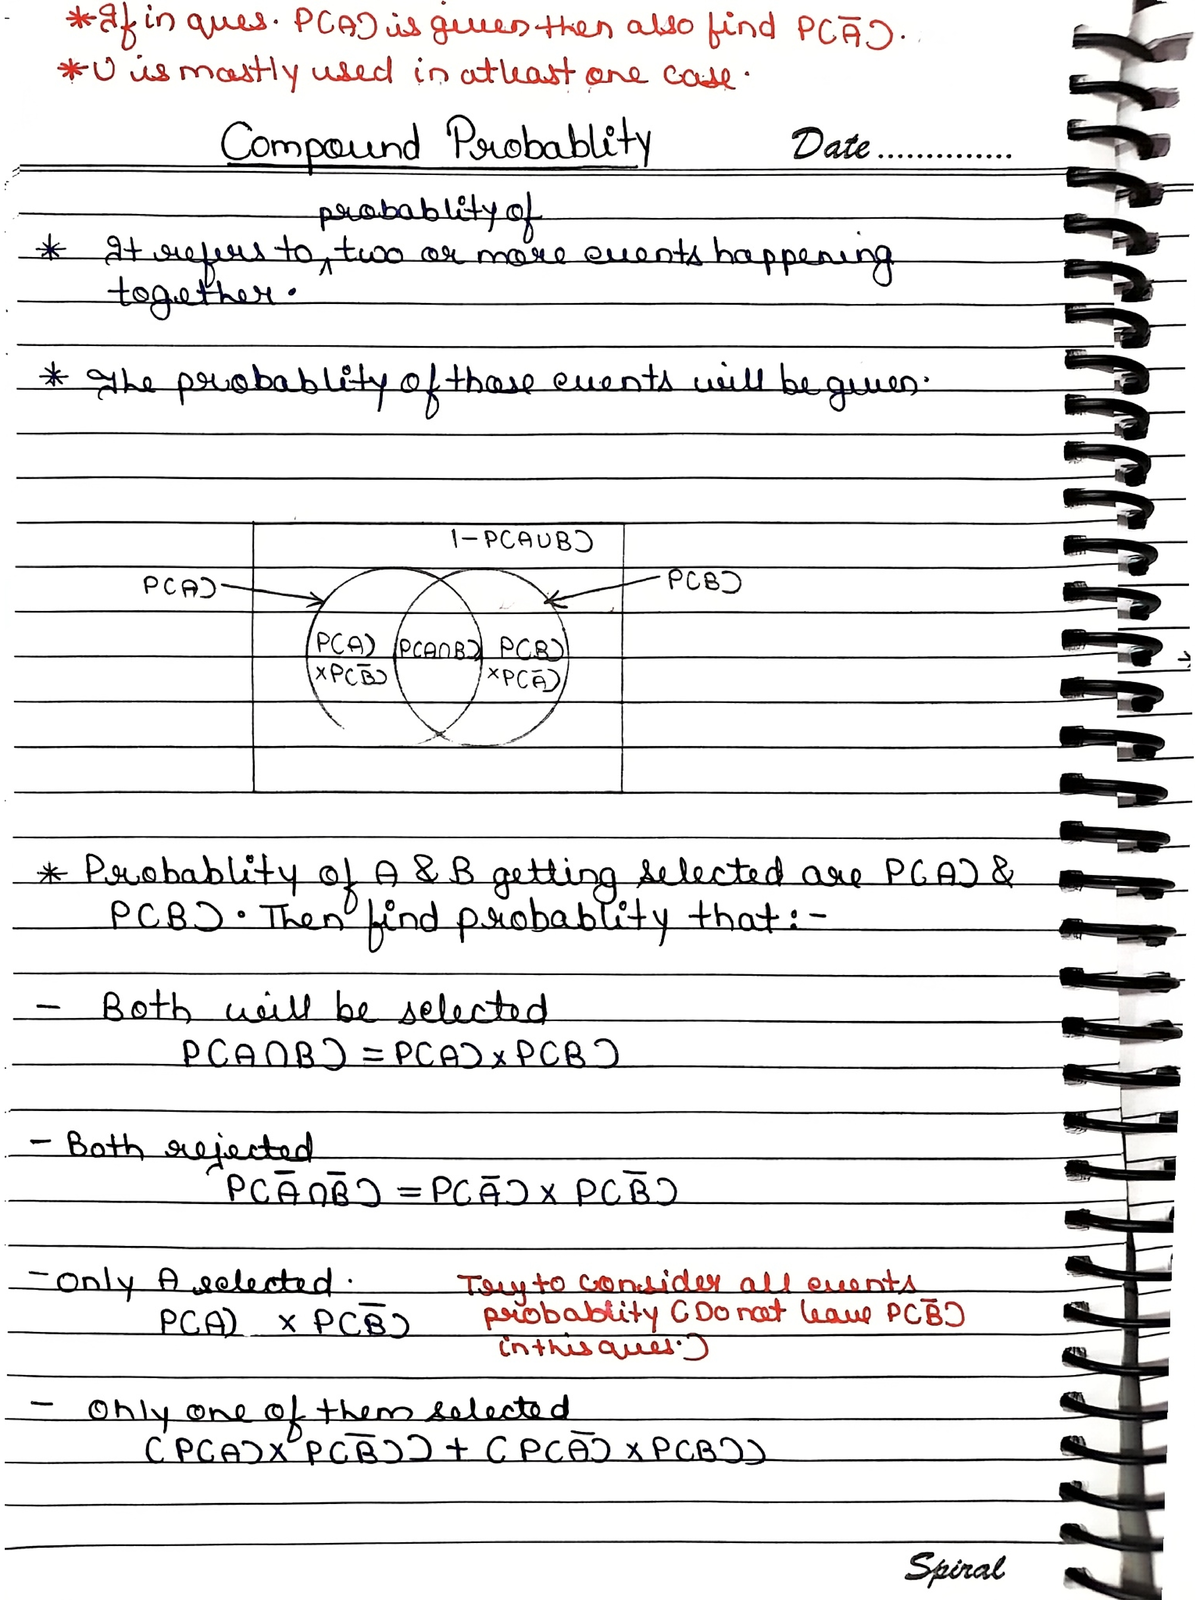 *If in ques. P(A) is given then also find P(Ā).
*U is mostly used in atleast one case.
Compound Probablity Date..............
probablity of
* It refers to ^ two or more events happening
together.
* The probablity of those events will be given.
1-P(A∪B)
P(A) P(B)
P(A) P(A∩B) P(B)
×P(B̄) ×P(Ā)
* Probablity of A & B getting selected are P(A) &
P(B). Then find probablity that:-
- Both will be selected
P(A∩B) = P(A) × P(B)
- Both rejected
P(Ā∩B̄) = P(Ā) × P(B̄)
- only A selected. Try to consider all events
P(A) × P(B̄) probablity (Do not leave P(B̄)
in this ques.)
- only one of them selected
(P(A) × P(B̄)) + (P(Ā) × P(B))
Spiral